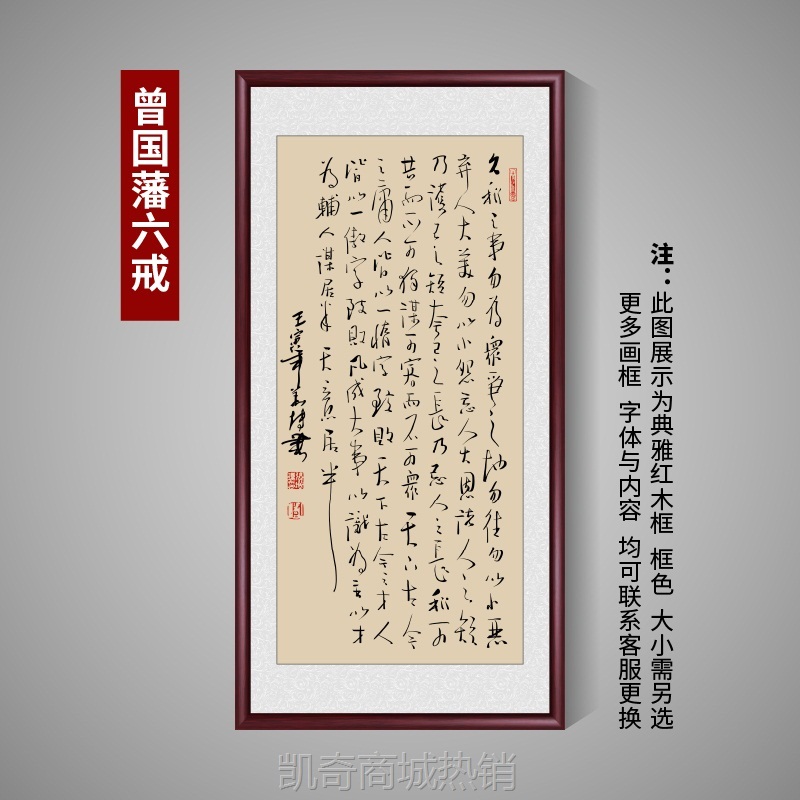 曾国藩六戒
久利之事勿為衆爭之地勿往勿以小惡
弃人大美勿以小怨忘人大恩説人之短
乃護己之短夸己之長乃忌人之長利可
共而不可獨謀可寡而不可衆天下古今
之庸人皆以一惰字致敗天下古今之才人
皆以一傲字致敗凡成大事以識為主以才
為輔人謀居半天意居半
壬寅年
注：此图展示为典雅红木框 框色 大小需另选
更多画框 字体与内容 均可联系客服更换
凯奇商城热销